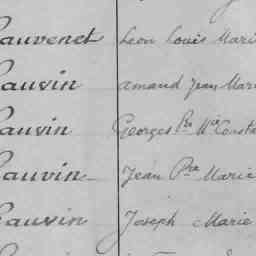 auvenet Leon Louis Mari
auvin amand Jean Mari
auvin Georges Pre Mie Consta
auvin Jean Pre Marie
auvin Joseph Marie